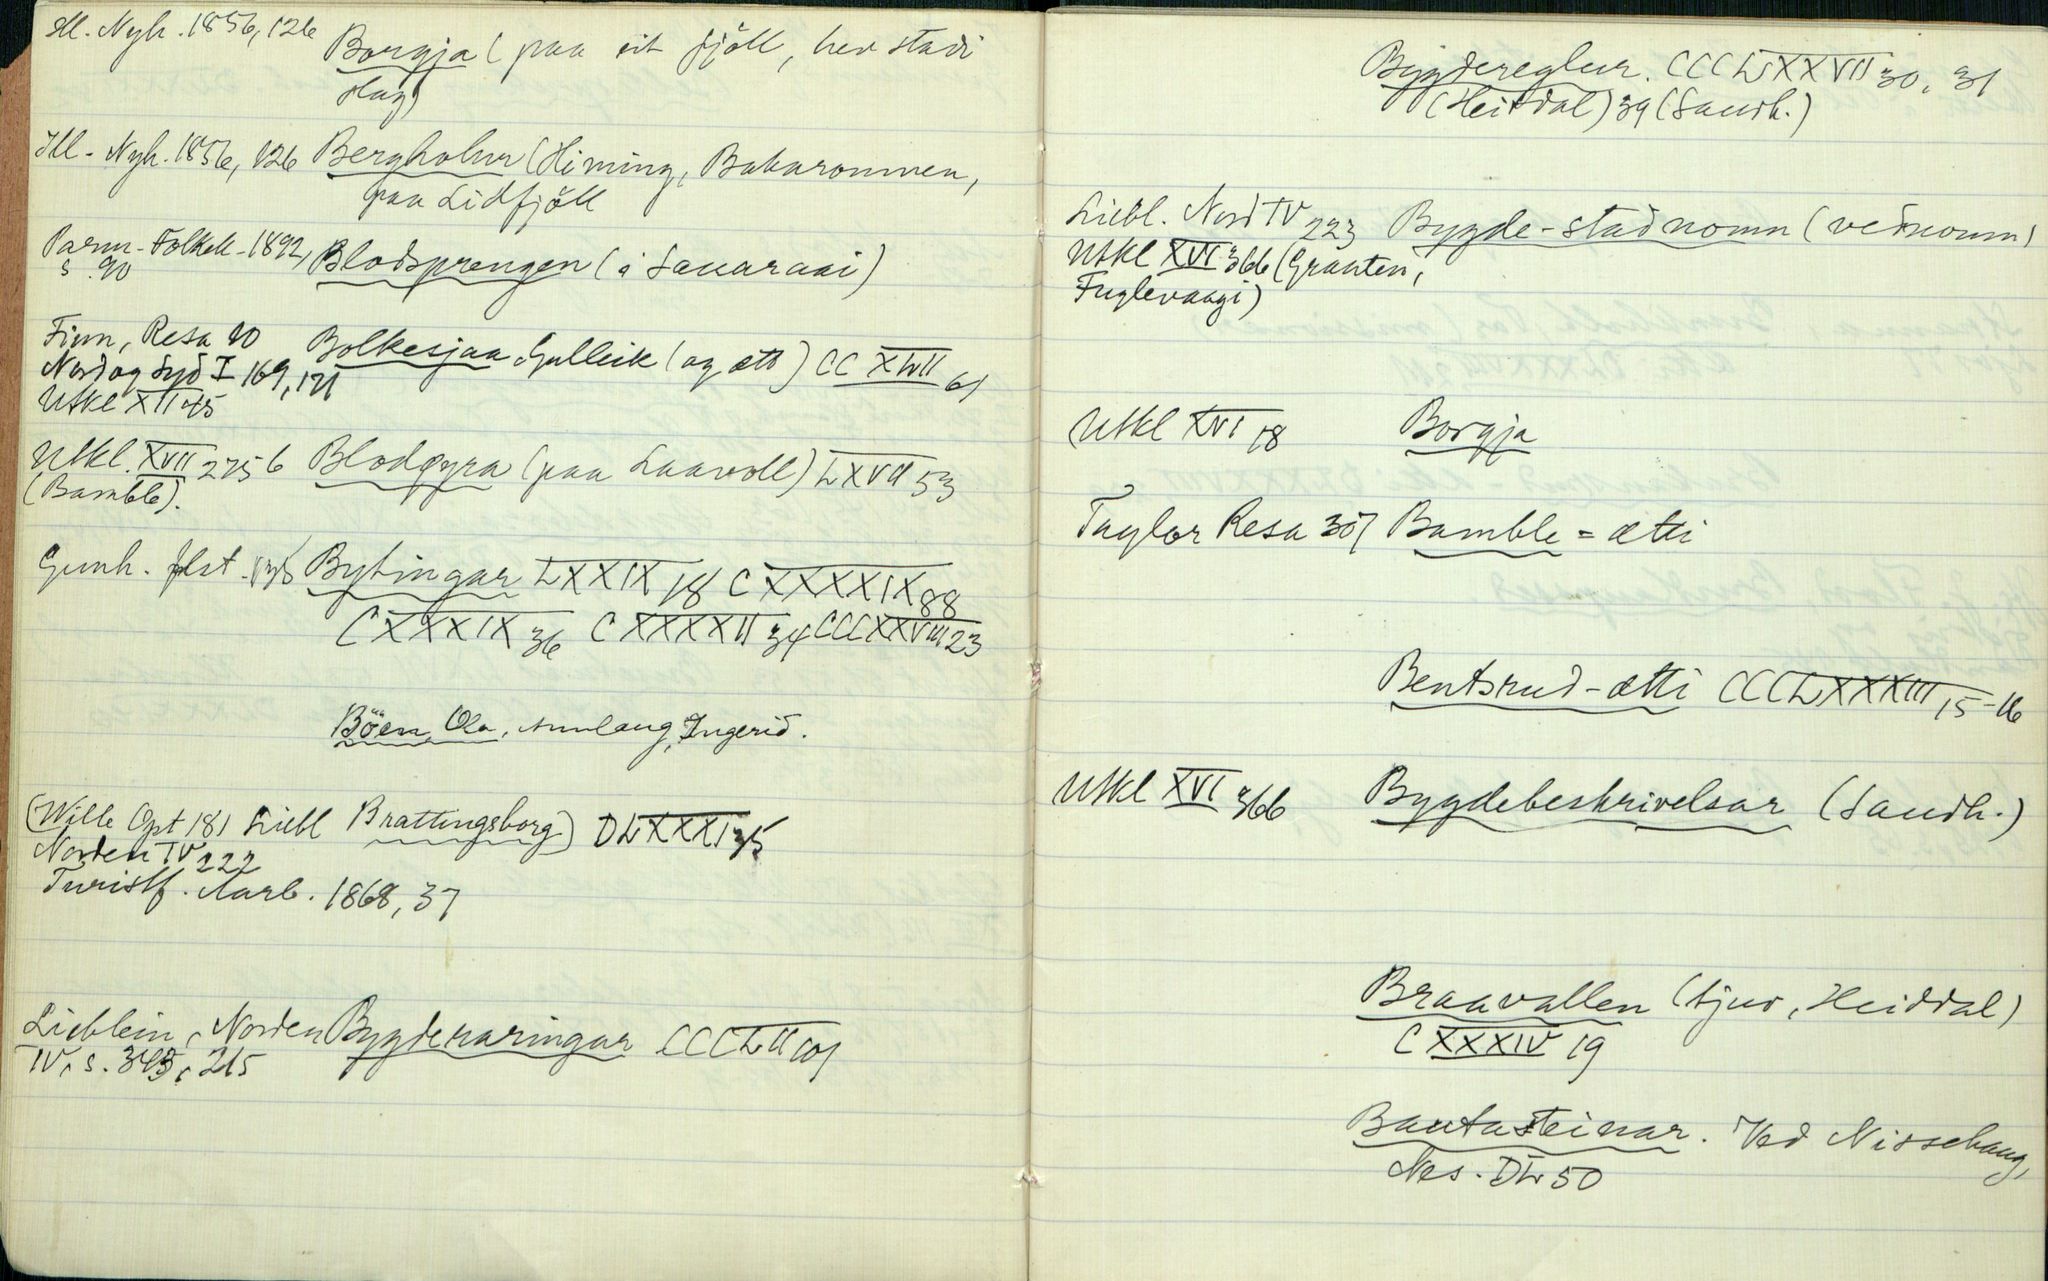 Ill. Nyh. 1856, 126 Borgja (paa eit fjöll, her stadi
Haug)
Ill. Nyh. 1856, 126 Bergholur (Himing, Bakarommen,
paa Lidfjöll
Parm. Folkek. 1892, Blodsprengen (i Sauaraai)
s. 90
Finn, Resa 20 Bolkesjaa, Gulleik (og ætt) CCXLVII 61
Nord og Syd I 169, 171
Utkl XII 45
Utkl. XVII 275 6 Blodøyra (paa Laavoll) LXVII 53
(Bamble).
Gunh. flst. Bytingar LXXIX 18 CXXXXIX 88
CXXXIX 36 CXXXXII 34 CCCXXVIII 23
Böen, Ola, Aunlaug, Ingerid.
(Wille Opt 181 Liebl Brattingsborg) DLXXXI 35
Norden IV 222
Turistf. Aarb. 1868, 37
Lieblein, Norden Bygderaringar CCCLII 101
IV, s. 343, 215
Bygdereglur. CCCLXXXVII 30, 31
(Heitdal) 39 (Saudh.)
Liebl. Nord IV 223 Bygde-stadnomn (vednomn)
Utkl XVI 366 (Grauten,
Fuglevaagi)
Utkl XVI 18 Borgja
Taylor Resa 307 Bamble = ætti
Bentsrud-ætti CCCLXXXXIII 15-16
Utkl XVI 366 Bygdebeskrivelsar (Saudh.)
Braavallen (tjuv, Heiddal)
CXXXIV 19
Bautasteinar. Ved Nissehaug,
Nes. DL 50